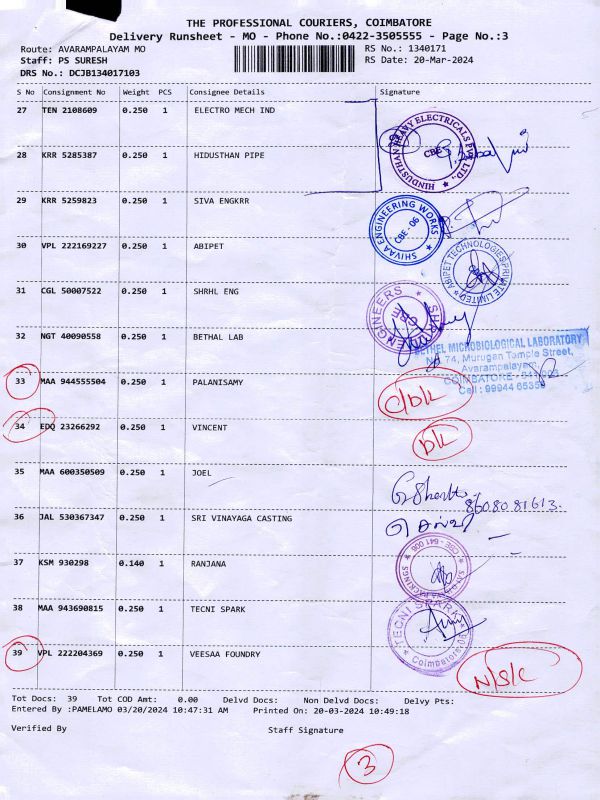 THE PROFESSIONAL COURIERS, COIMBATORE
Delivery Runsheet - MO - Phone No.:0422-3505555 - Page No.:3
Route: AVARAMPALAYAM MO RS No.: 1340171
Staff: PS SURESH RS Date: 20-Mar-2024
DRS No.: DCJB134017103
S No Consignment No Weight PCS Consignee Details Signature
27 TEN 2108609 0.250 1 ELECTRO MECH IND
HINDUSTHAN HEAVY ELECTRICALS PVT. LTD., CBE
28 KRR 5285387 0.250 1 HIDUSTHAN PIPE
29 KRR 5259823 0.250 1 SIVA ENGKRR
SHIVAA ENGINEERING WORKS CBE-06
30 VPL 222169227 0.250 1 ABIPET
ABIPET TECHNOLOGIES PRIVATE LIMITED
31 CGL 50007522 0.250 1 SHRHL ENG
ENGINEERS CBE
32 NGT 40090558 0.250 1 BETHAL LAB
BETHEL MICROBIOLOGICAL LABORATORY
No. 74, Murugan Temple Street,
Avarampalayam,
COIMBATORE
Cell : 99944 65359
33 MAA 944555504 0.250 1 PALANISAMY
C/DK
34 EDQ 23266292 0.250 1 VINCENT
DK
35 MAA 600350509 0.250 1 JOEL
8608081613
36 JAL 530367347 0.250 1 SRI VINAYAGA CASTING
37 KSM 930298 0.140 1 RANJANA
CBE - 641 006
38 MAA 943690815 0.250 1 TECNI SPARK
TECNI SPARK Coimbatore
39 VPL 222204369 0.250 1 VEESAA FOUNDRY
N/S/C
Tot Docs: 39 Tot COD Amt: 0.00 Delvd Docs: Non Delvd Docs: Delvy Pts:
Entered By :PAMELAMO 03/20/2024 10:47:31 AM Printed On: 20-03-2024 10:49:18
Verified By Staff Signature
3